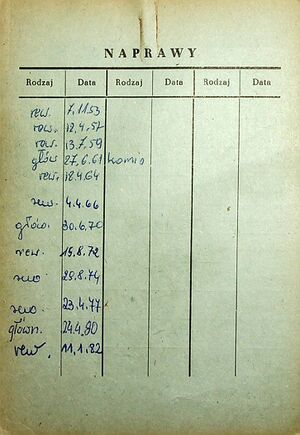 NAPRAWY
Rodzaj Data Rodzaj Data Rodzaj Data
rew. 7.11.53
rew. 12.4.57
rew. 13.7.59
głów 27.6.61
rew. 12.4.64
rew. 4.4.66
głów. 30.6.70
rew. 15.8.72
rew 29.8.74
rew. 23.4.77
główn. 24.4.80
rew. 11.1.82